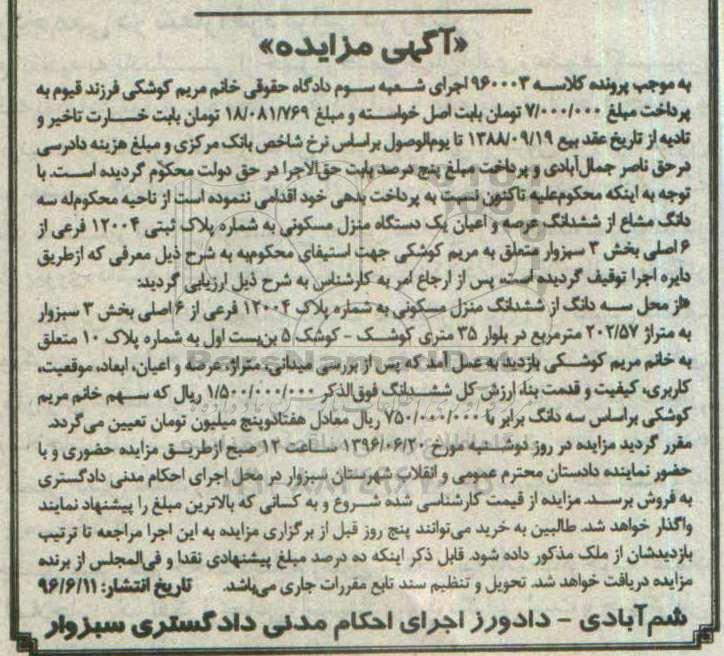 «آگهی مزایده»
به موجب پرونده کلاسه ۹۶۰۰۰۳ اجرای شعبه سوم دادگاه حقوقی خانم مریم کوشکی فرزند قیوم به
پرداخت مبلغ ۷/۰۰۰/۰۰۰ تومان بابت اصل خواسته و مبلغ ۱۸/۰۸۱/۷۶۹ تومان بابت خسارت تاخیر و
تادیه از تاریخ عقد بیع ۱۳۸۸/۰۹/۱۹ تا یوم‌الوصول براساس نرخ شاخص بانک مرکزی و مبلغ هزینه دادرسی
درحق ناصر جمال‌آبادی و پرداخت مبلغ پنج درصد بابت حق‌الاجرا در حق دولت محکوم گردیده است. با
توجه به اینکه محکوم‌علیه تاکنون نسبت به پرداخت بدهی خود اقدامی ننموده است از ناحیه محکوم‌له سه
دانگ مشاع از ششدانگ عرصه و اعیان یک دستگاه منزل مسکونی به شماره پلاک ثبتی ۱۲۰۰۴ فرعی از
۶ اصلی بخش ۳ سبزوار متعلق به مریم کوشکی جهت استیفای محکوم‌به به شرح ذیل معرفی که ازطریق
دایره اجرا توقیف گردیده است، پس از ارجاع امر به کارشناس به شرح ذیل ارزیابی گردید:
«از محل سه دانگ از ششدانگ منزل مسکونی به شماره پلاک ۱۲۰۰۴ فرعی از ۶ اصلی بخش ۳ سبزوار
به متراژ ۲۰۲/۵۷ مترمربع در بلوار ۳۵ متری کوشک - کوشک ۵ بن‌بست اول به شماره پلاک ۱۰ متعلق
به خانم مریم کوشکی بازدید به عمل آمد که پس از بررسی میدانی، متراژ، عرصه و اعیان، ابعاد، موقعیت،
کاربری، کیفیت و قدمت بنا، ارزش کل ششدانگ فوق‌الذکر ۱/۵۰۰/۰۰۰/۰۰۰ ریال که سهم خانم مریم
کوشکی براساس سه دانگ برابر با ۷۵۰/۰۰۰/۰۰۰ ریال معادل هفتادوپنج میلیون تومان تعیین می‌گردد.
مقرر گردید مزایده در روز دوشنبه مورخ ۱۳۹۶/۰۶/۲۰ ساعت ۱۲ صبح ازطریق مزایده حضوری و با
حضور نماینده دادستان محترم عمومی و انقلاب شهرستان سبزوار در محل اجرای احکام مدنی دادگستری
به فروش برسد. مزایده از قیمت کارشناسی شده شروع و به کسانی که بالاترین مبلغ را پیشنهاد نمایند
واگذار خواهد شد. طالبین به خرید می‌توانند پنج روز قبل از برگزاری مزایده به این اجرا مراجعه تا ترتیب
بازدیدشان از ملک مذکور داده شود. قابل ذکر اینکه ده درصد مبلغ پیشنهادی نقدا و فی‌المجلس از برنده
مزایده دریافت خواهد شد. تحویل و تنظیم سند تابع مقررات جاری می‌باشد. تاریخ انتشار: ۹۶/۶/۱۱
شم‌آبادی - دادورز اجرای احکام مدنی دادگستری سبزوار